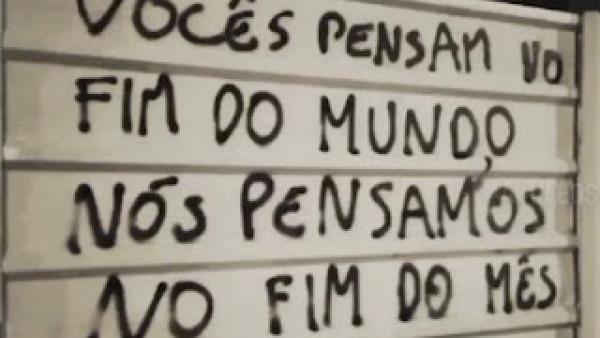 VOCÊS PENSAM NO
FIM DO MUNDO,
NÓS PENSAMOS
NO FIM DO MÊS